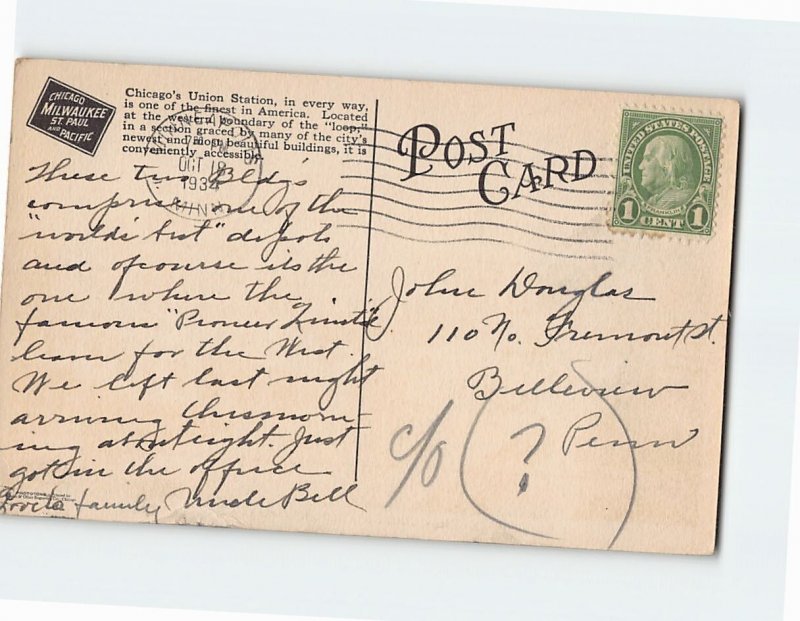 CHICAGO
MILWAUKEE
ST. PAUL
AND PACIFIC
Chicago's Union Station, in every way,
is one of the finest in America. Located
at the western boundary of the "loop,"
in a section graced by many of the city's
newest and most beautiful buildings, it is
conveniently accessible.
OCT 18
1934
MINN
POST
CARD
UNITED STATES POSTAGE
FRANKLIN
1 CENT 1
These two Bldg's
comprise one of the
"world's best" depots
and ofcourse its the
one where the
famous "Pioneer Limited"
leave for the West.
We left last night
arriving this morn-
ing about eight. Just
got in the office
Love to family Uncle Bell
John Douglas
110 No. Fremont St.
Belleview
Penn
c/o ?